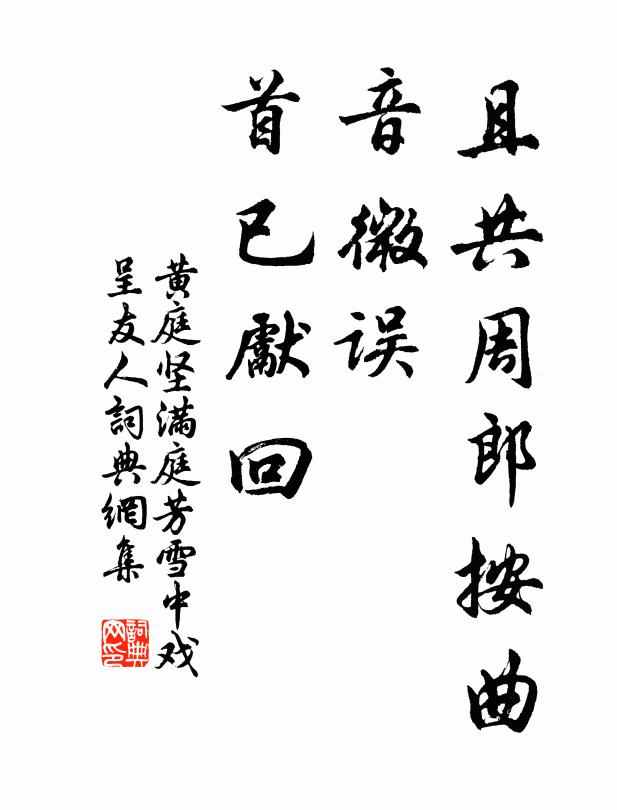 且共周郎按曲
音微误
首已獻回
黄庭坚满庭芳雪中戏
呈友人詞典網集
詞典
网印